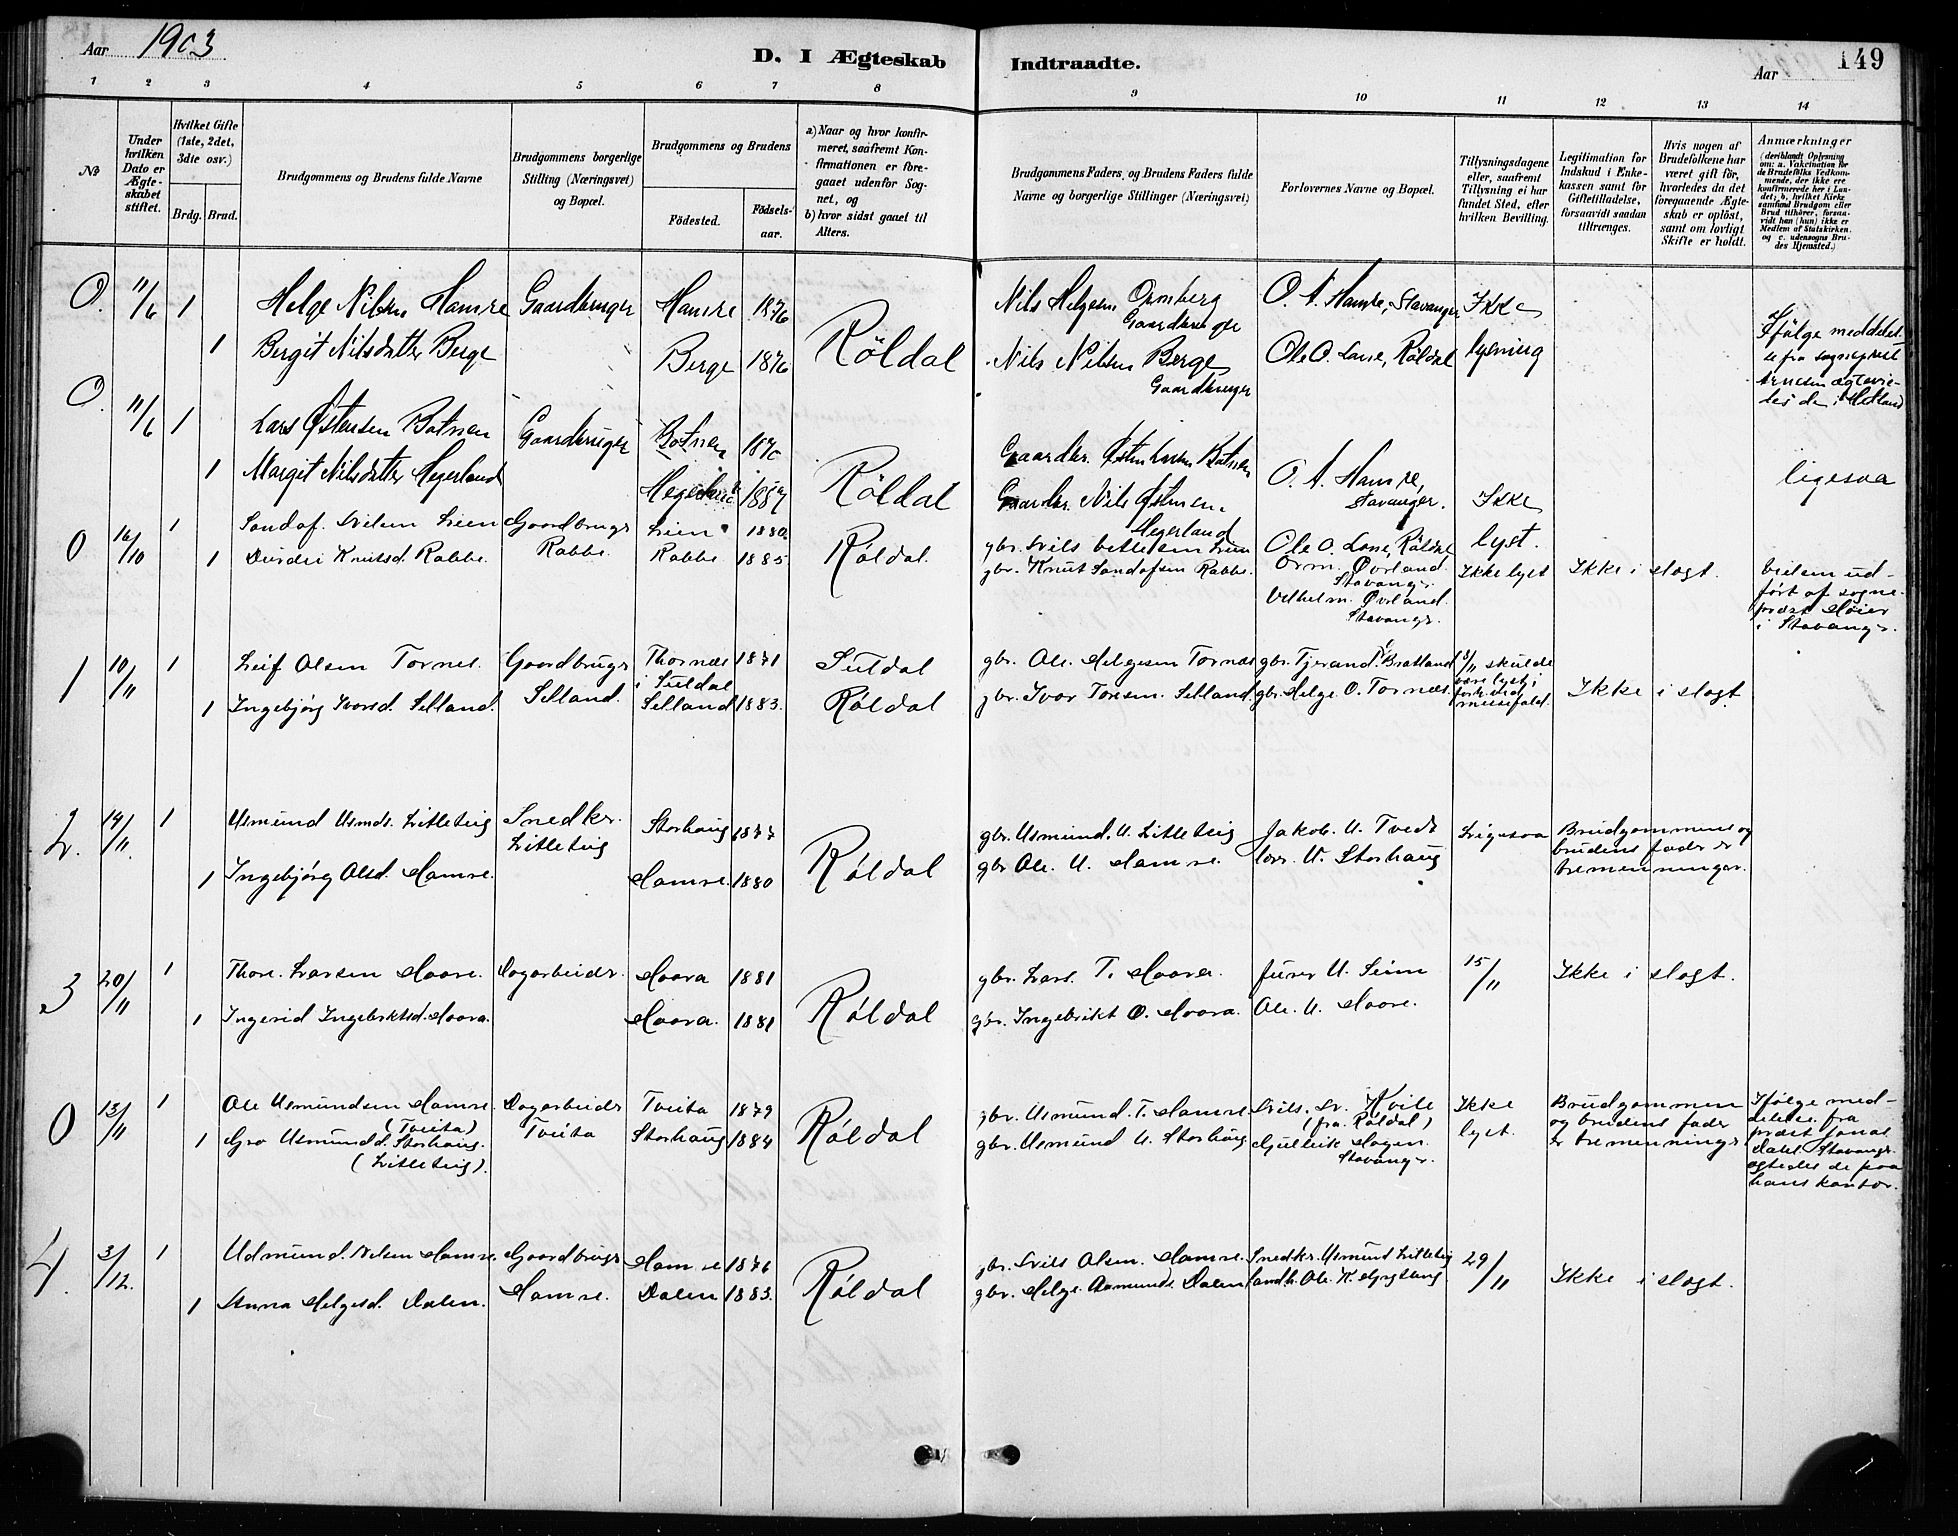 Aar 1903
D. I Ægteskab Indtraadte.
Aar
149
1 2 3 4 5 6 7 8 9 10 11 12 13 14
No
Under hvilken Dato er Ægteskabet stiftet.
Hvilket Gifte (1ste, 2det, 3die osv.)
Brdg. Brud.
Brudgommens og Brudens fulde Navne
Brudgommens borgerlige Stilling (Næringsvei) og Bopæl.
Brudgommens og Brudens
Fødested.
Fødselsaar.
a) Naar og hvor konfirmeret, saafremt Konfirmationen er foregaaet udenfor Sognet, og
b) hvor sidst gaaet til Alters.
Brudgommens Faders, og Brudens Faders fulde Navne og borgerlige Stillinger (Næringsvei)
Forlovernes Navne og Bopæl.
Tillysningsdagene eller, saafremt Tillysning ei har fundet Sted, efter hvilken Bevilling.
Legitimation for Indskud i Enkekassen samt for Giftetilladelse, forsaavidt saadan tiltrænges.
Hvis nogen af Brudefolkene har været gift før, hvorledes da det foregaaende Ægteskab er opløst, samt om lovligt Skifte er holdt.
Anmærkninger
(deriblandt Oplysning om: a. Vakcination for de Brudefolks Vedkommende, der ikke ere konfirmerede her i Landet; b. hvilket Kirkesamfund Brudgom eller Brud tilhører, forsaavidt han (hun) ikke er Medlem af Statskirken, og c. udensogns Brudes Hjemsted.)
O. 11/6 1 Helge Nilsen Hamre Gaardbruger Hamre 1876 Nils Helgesen Ormberg Gaardbruger O. A. Hamre, Stavanger Ikke
1 Bergit Nilsdatter Berge Berge 1876 Röldal Nils Nilsen Berge Gaardbruger Ole O. Lone, Röldal lysning
Ifølge meddelelse fra sogneprest Arnesen ægteviedes de i Hetland
O. 11/6 1 Lars Østensen Botnen Gaardbruger Botnen 1870 Gaardbr. Østen Larsen Botnen O. A. Hamre, Stavanger. Ikke
1 Margit Nilsdatter Hegerland Hegerland Röldal Gaardbr. Nils Østensen Hegerland Ole O. Lone, Röldal lyst.
ligesaa
O 16/10 1 Sandof. Nilsen Lien Gaardbruger Lien 1880
1 Knutsd. Rabbe. Rabbe. Rabbe 1885 Røldal. gbr. Knut Sandofsen Rabbe. Orm. Øvrland. Stavanger. Ikke lyst Ikke i slægt.
Vilhelm. Øvrland. Stavanger.
vielsen udført af sogneprest Høier i Stavanger.
1 10/11 1 Leif Olsen Tornes. Gaardbruger Thornæs i Suldal 1871 Suldal gbr. Ole. Helgesen Tornæs gbr. Tjerand Bratland 8/11 skulde være lyst;
1 Ingebjørg Ivarsd. Selland. Selland. Selland 1883. Røldal gbr. Ivar Torsen. Selland. gbr. Helge O. Tornæs. Ikke i slægt
2. 14/11. 1 Asmund Asmds. Litletvig Snedker. Litletvig Storhaug 1877 gbr. Asmund. A. Litletvig Jakob. A. Tvedt Ligesaa Brudgommens og brudens fader er tremenninger.
1 Ingebjørg Olsd. Hamre. Hamre. 1880 Røldal gbr Ole. A. Hamre. A. Storhaug
3 20/11 1 Thore. Larsen Haare. Dagarbeider. Haara 1881 gbr. Lars T. Haara. A. Seim 15/11 Ikke i slægt.
1 Ingerid Ingebriktsd. Haara. Haara. 1881 Røldal gbr. Ingebrikt O. Haara. Ole. A. Haare.
O 13/11 1 Ole Asmundsen Hamre. (Tveita) Dagarbeider Tveita Tveita 1879 gbr. Asmund. T. Hamre Nils. Kvile (fra Røldal) Ikke lyst. Brudgommen og brudens fader er tremenninger
1 Gro Asmundd. Storhaug. (Litletvig). Storhaug 1884 Røldal gbr. Asmund A. Storhaug Gjulleik Hagen. Stavanger.
Ifølge meddelelse fra prest Jonas Dahl Stavanger. egtedes de paa hans kontor.
4. 3/12. 1 Admund. Nilsen Hamre. Gaardbruger Hamre. Hamre 1876 gbr. Nils Olsen. Hamre. Snedkr. Asmund Litletvig 29/11
1 Anna Helgesd. Dalen. Dalen 1883. Røldal gbr. Helge Aamunds. Dalen Ikke i slægt.